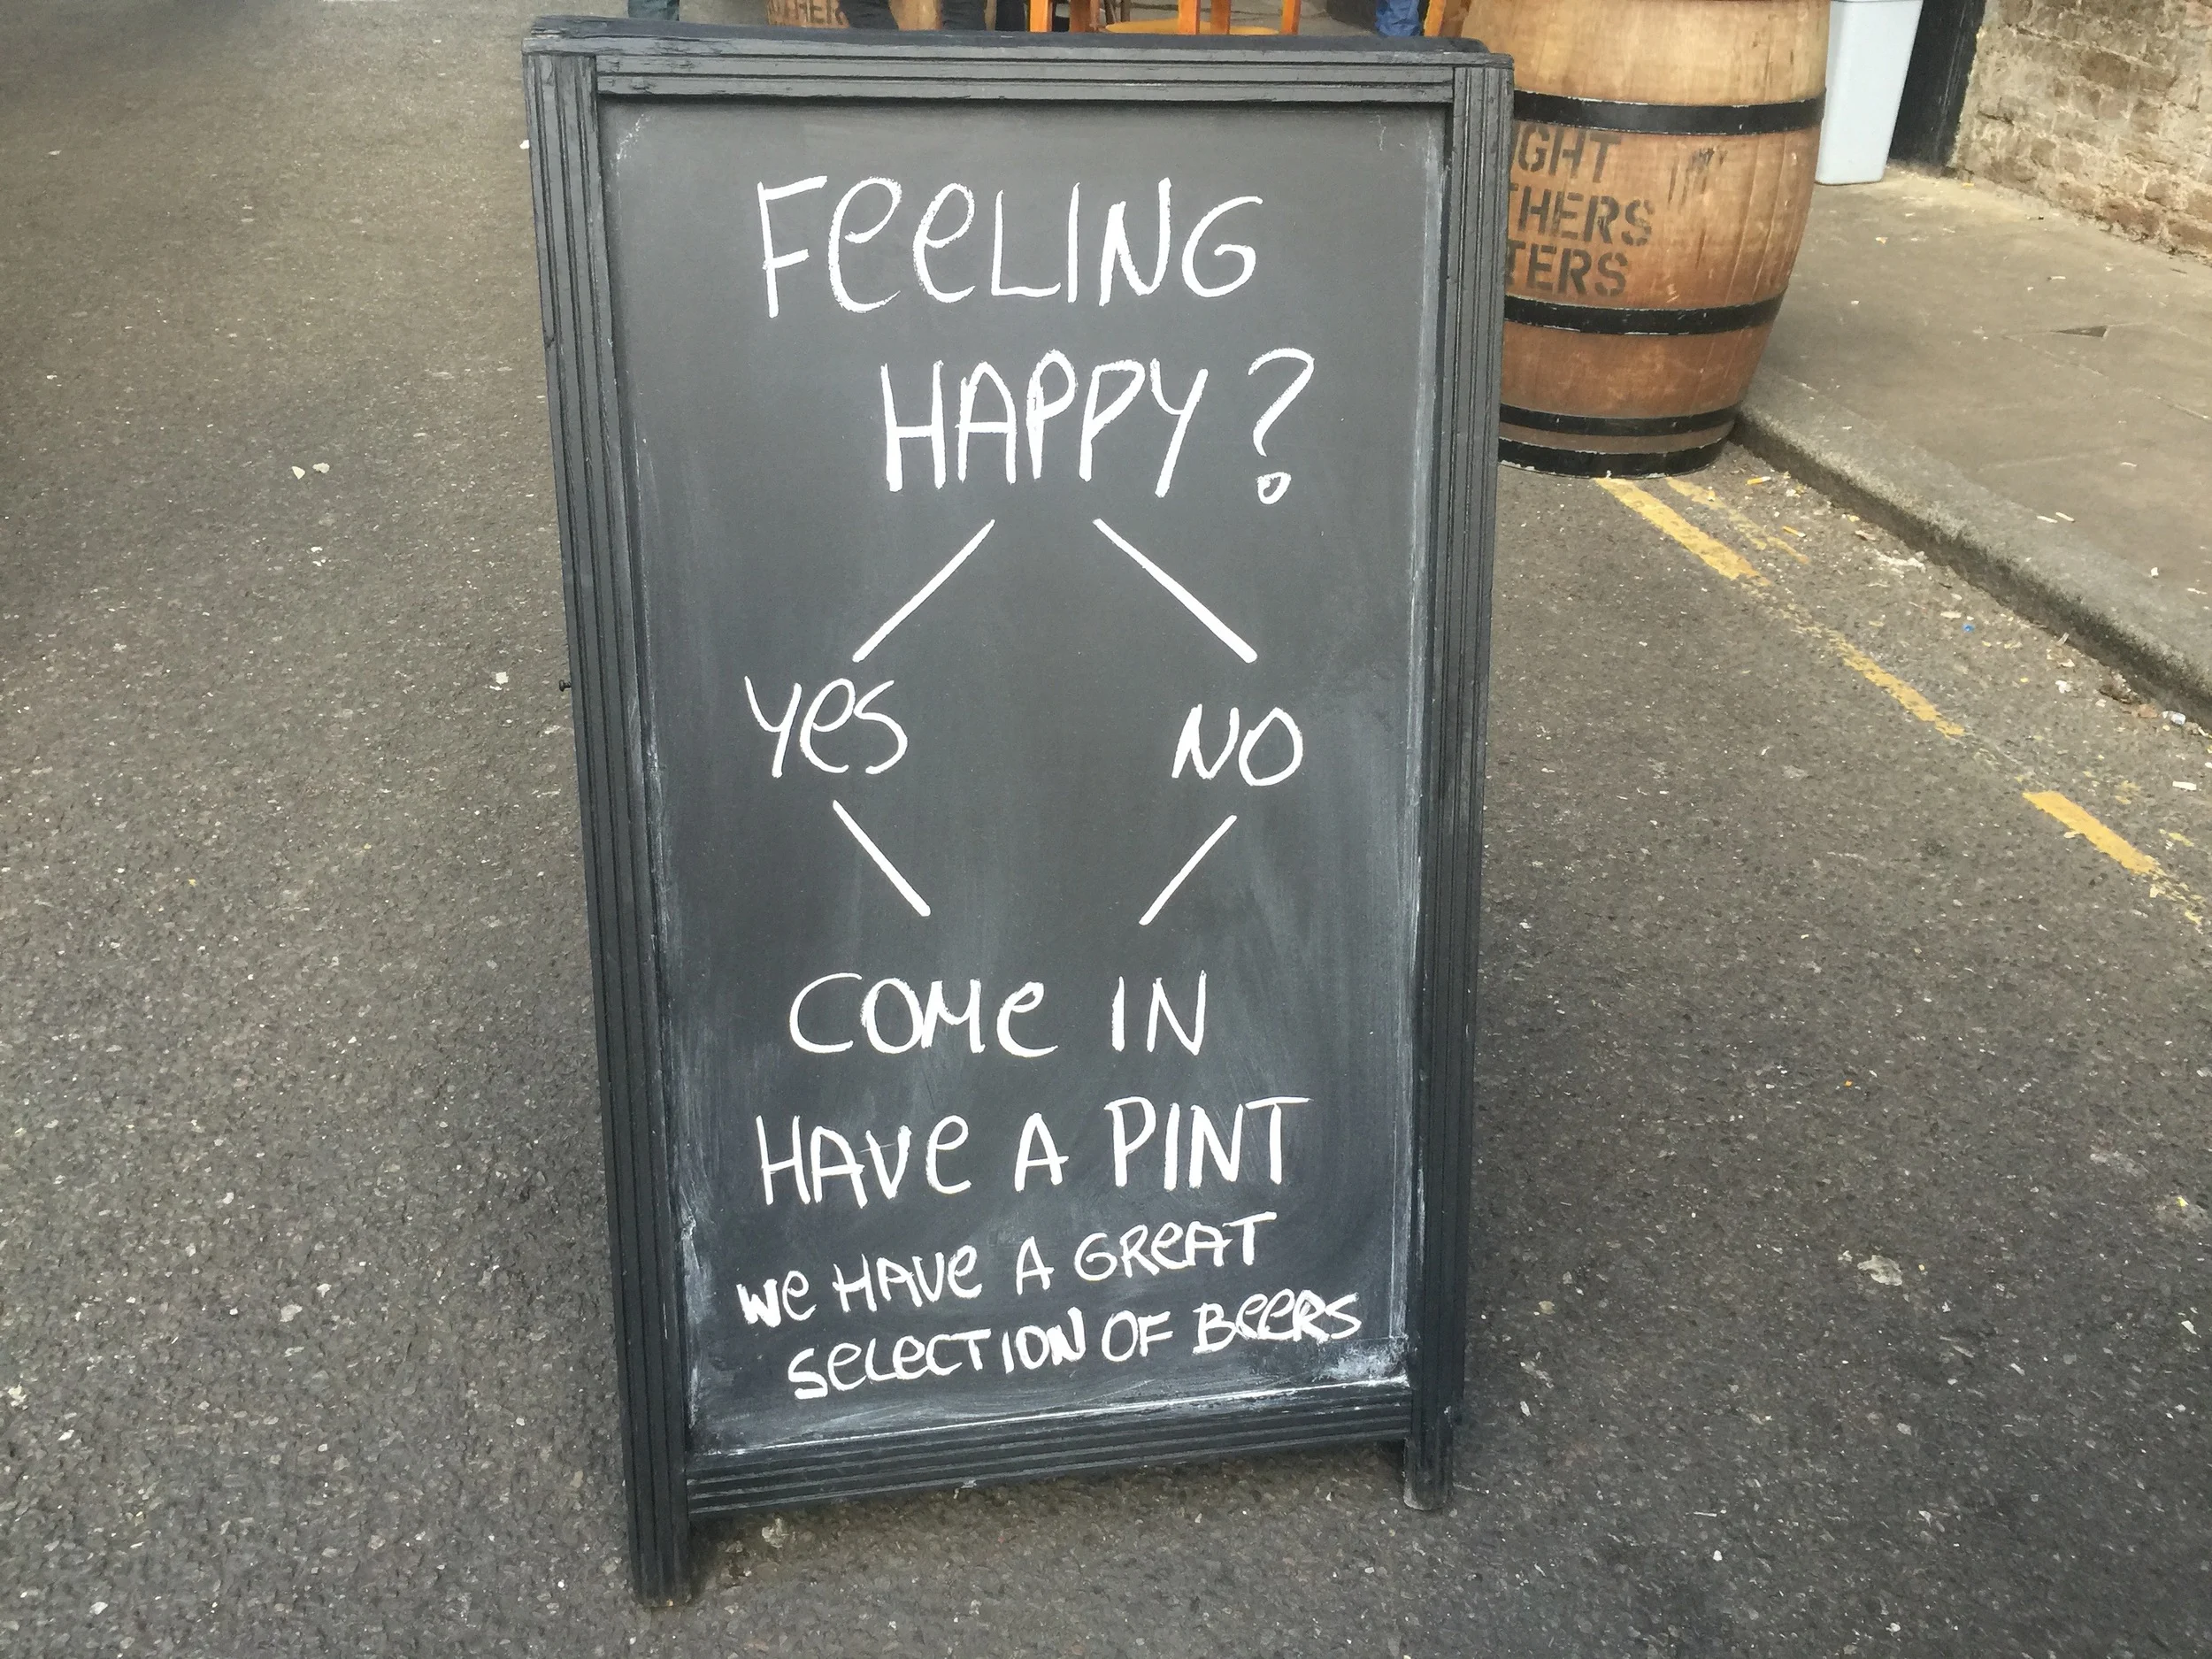 FeeLING
HAPPY?
Yes NO
COMe IN
HAVe A PINT
We HAVe A GReAT
SeLeCTION OF BeeRS